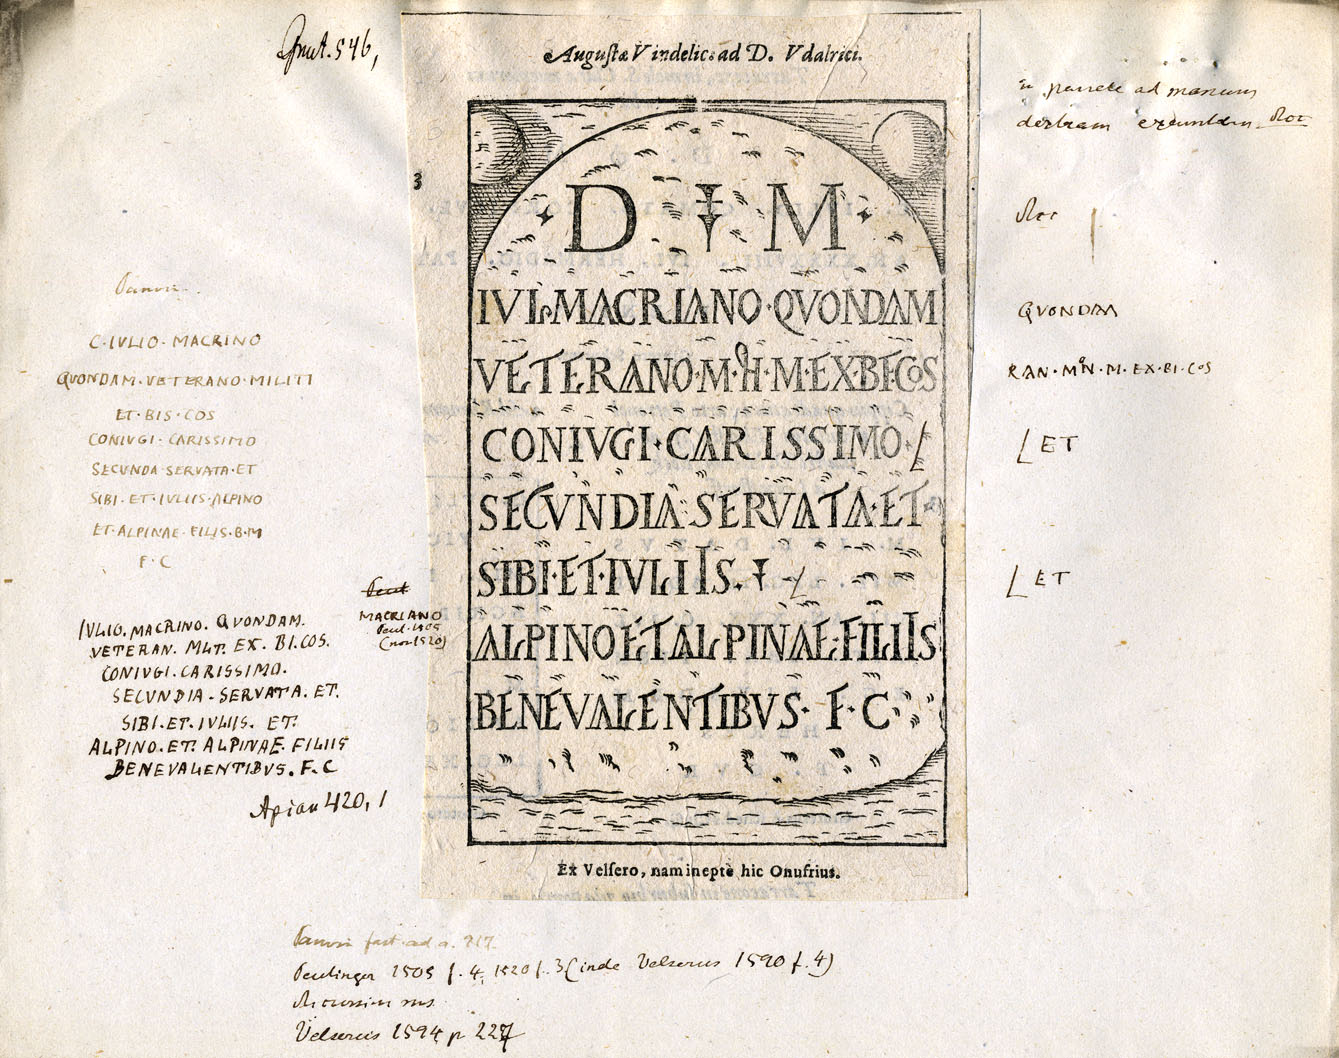 Grut. 546,
Augustæ Vindelic. ad D. Vdalrici.
in pariete ad manum
dextram
3
D M
IVL·MACRIANO·QVONDAM
VETERANO·M·H·M·EX·BF·COS
CONIVGI·CARISSIMO·
SECVNDIA·SERVATA·ET
SIBI·ET·IVLIIS·
ALPINO ET ALPINAE·FILIIS
BENEVALENTIBVS· F·C·
Ex Velsero, nam ineptè hic Onufrius.
QVONDAM
RAN·MN·M·EX·BI·COS
ET
ET
C·IVLIO·MACRINO
QVONDAM·VETERANO·MILITI
ET·BIS·COS
CONIVGI·CARISSIMO
SECUNDA·SERVATA·ET
SIBI·ET·IVLIIS·ALPINO
ET·ALPINAE·FILIS·B·M
F·C
MACRIANO
Peut. 1505
(non 1520)
IVLIO. MACRINO. QVONDAM.
VETERAN. MLT. EX. BI. COS.
CONIVGI. CARISSIMO.
SECVNDIA. SERVATA. ET.
SIBI. ET. IVLIIS. ET.
ALPINO. ET. ALPINAE. FILIIS
BENEVALENTIBVS. F. C
Apian 420, 1
fast. ad a. 217.
Peutinger 1505 f. 4, 1520 f. 3 (inde Velserus 1590 f. 4)
Velserus 1594 p 227